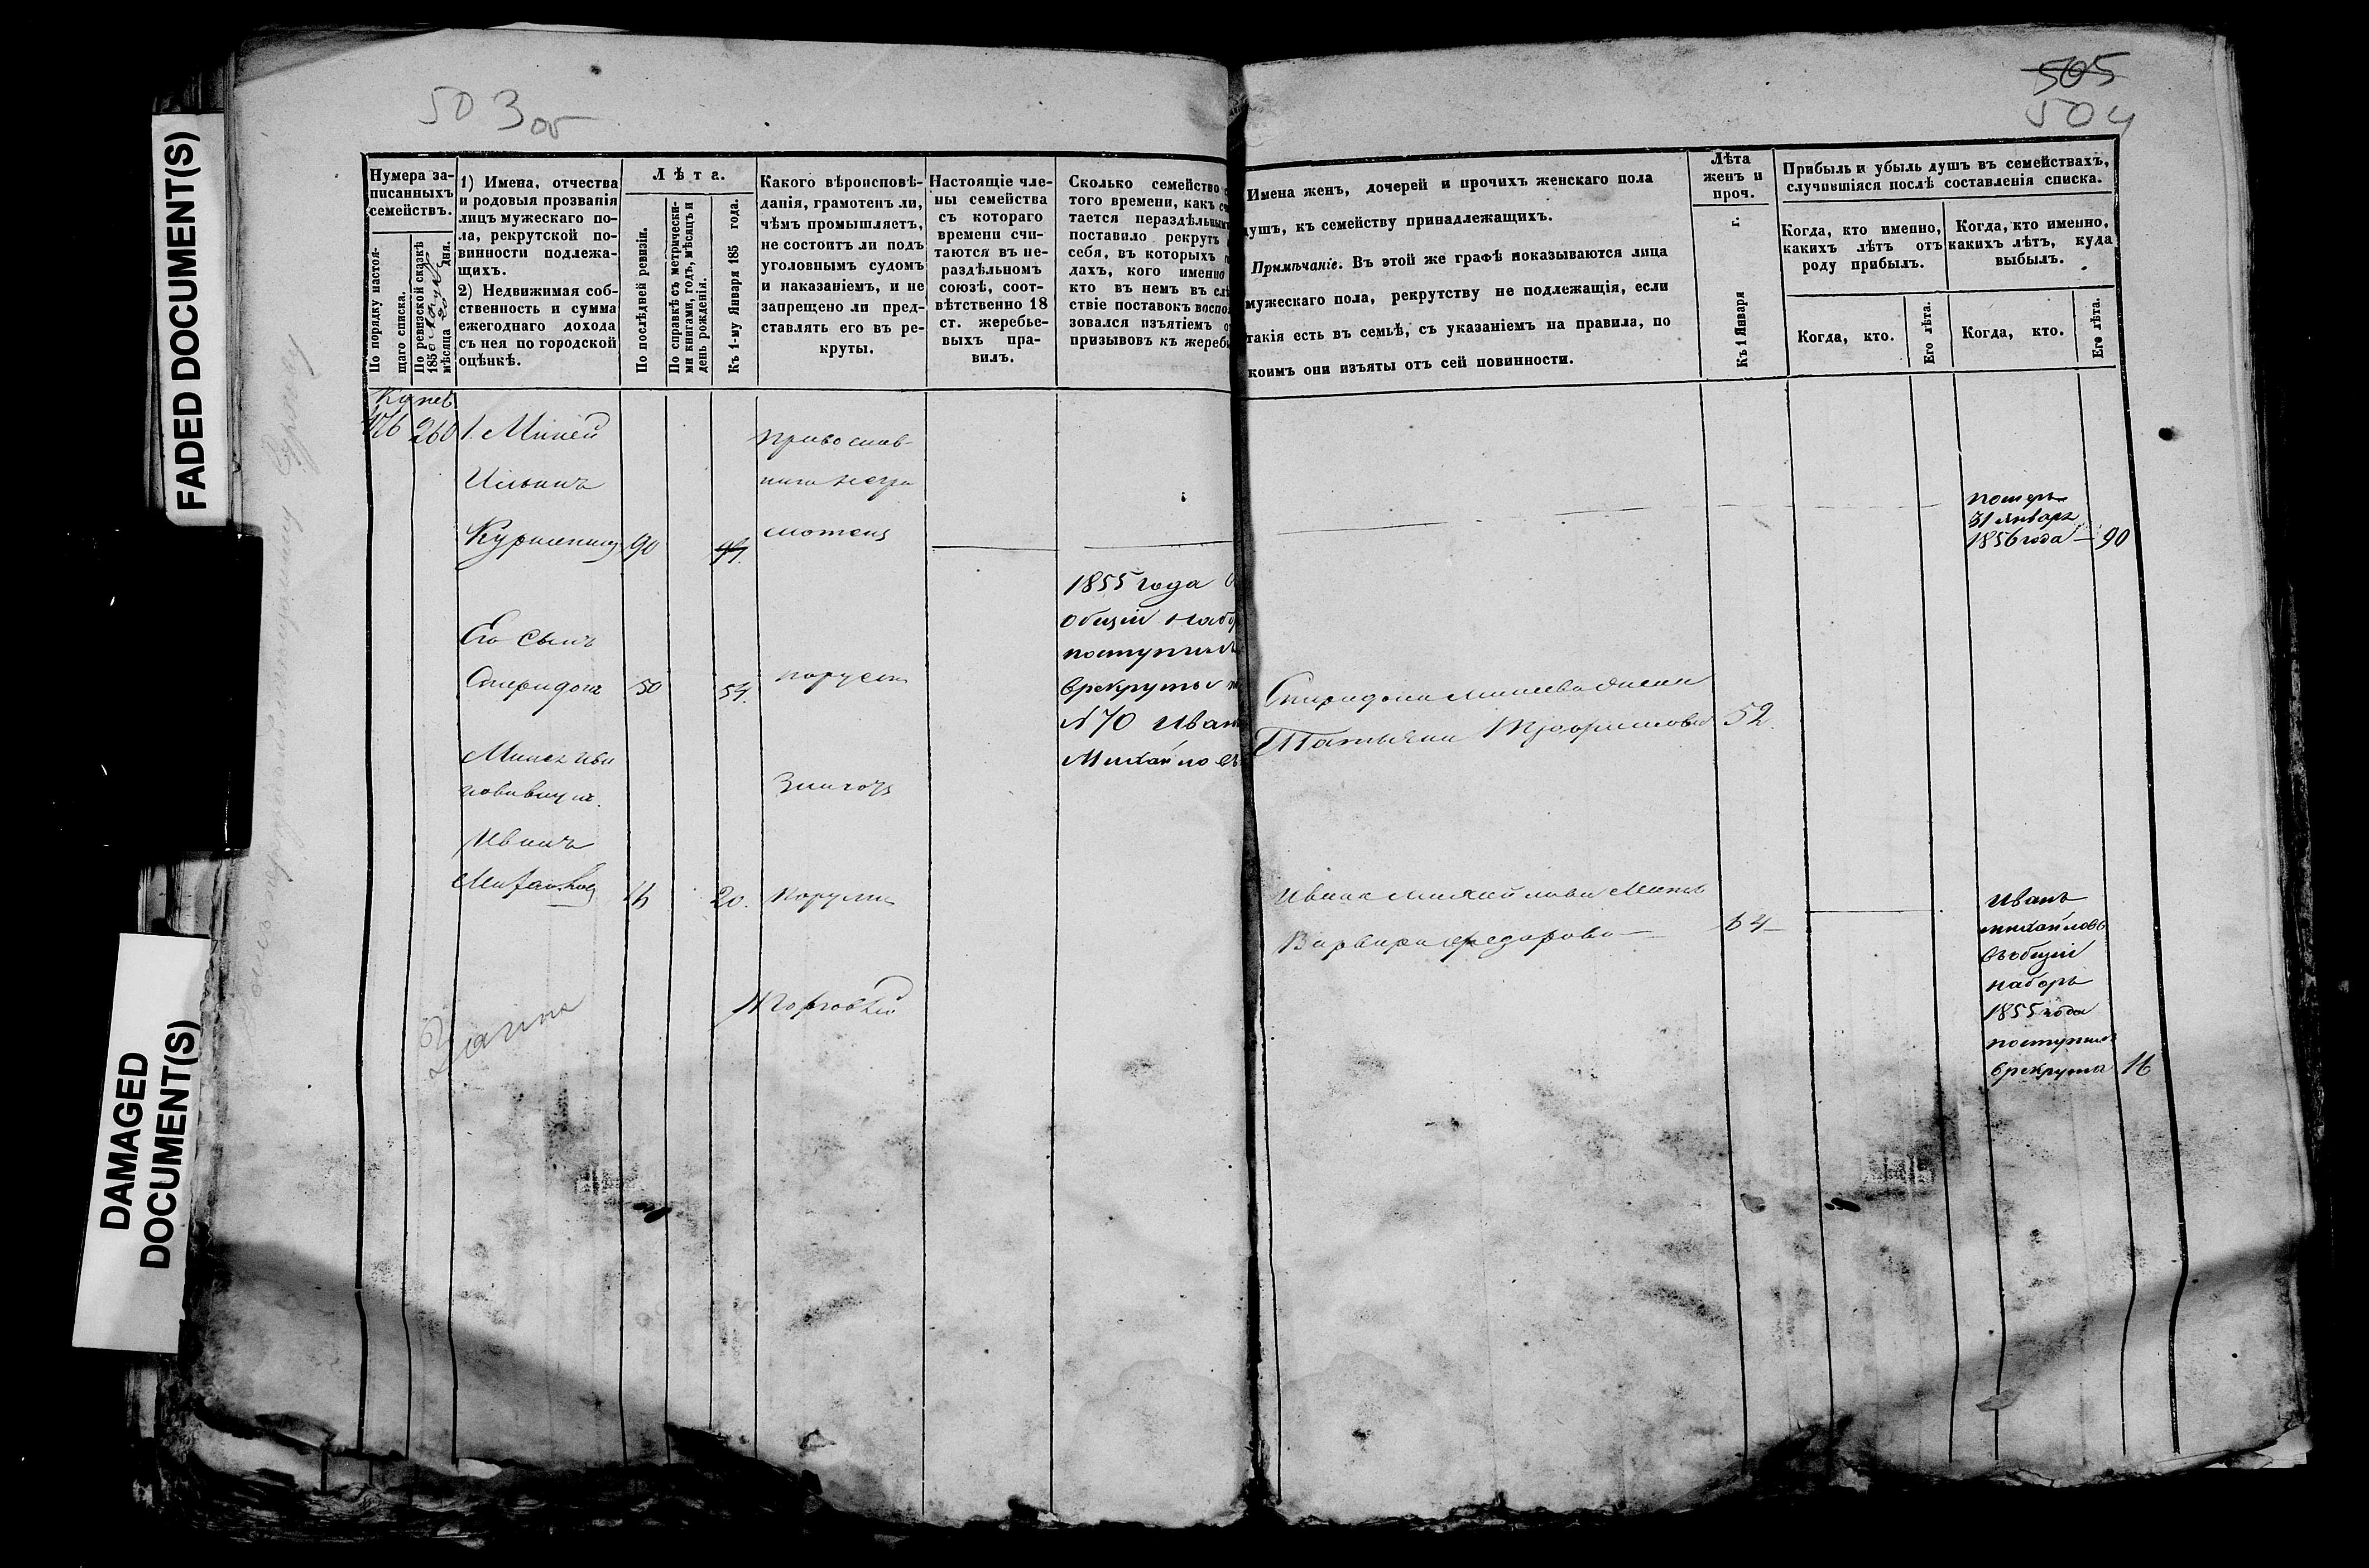 FADED DOCUMENT(S)
DAMAGED
DOCUMENT(S)
503 об
505
504
Нумера за-
писанныхъ
семействъ.
По порядку настоя-
щаго списка.
По ревизской сказкѣ
1850
мѣсяца 20 дня.
1) Имена, отчества
и родовыя прозванія
лицъ мужескаго по-
ла, рекрутской по-
винности подлежа-
щихъ.
2) Недвижимая соб-
ственность и сумма
ежегоднаго дохода
съ нея по городской
оцѣнкѣ.
Лѣта.
По послѣдней ревизіи.
По справкѣ съ метрически-
ми книгами, годъ, мѣсяцъ и
день рожденія.
Къ 1-му Января 185 года.
Какого вѣроисповѣ-
данія, грамотенъ ли,
чѣмъ промышляетъ,
не состоитъ ли подъ
уголовнымъ судомъ
и наказаніемъ, и не
запрещено ли пред-
ставлять его въ ре-
круты.
Настоящіе чле-
ны семейства
съ котораго
времени счи-
таются въ не-
раздѣльномъ
союзѣ, соот-
вѣтственно 18
ст. жеребье-
выхъ пра-
вилъ.
Сколько семейство
того времени, какъ
тается нераздѣльным
поставило рекрутъ
себя, въ которыхъ
дахъ, кого именно
кто въ немъ въ
ствіе поставокъ воспо
зовался изъятіемъ
призывовъ къ жереб
Имена женъ, дочерей и прочихъ женскаго пола
душъ, къ семейству принадлежащихъ.
Примѣчаніе. Въ этой же графѣ показываются лица
мужескаго пола, рекрутству не подлежащія, если
такія есть въ семьѣ, съ указаніемъ на правила, по
коимъ они изъяты отъ сей повинности.
Лѣта
женъ и
проч.
Къ 1 Января г.
Прибыль и убыль душъ въ семействахъ,
случившіяся послѣ составленія списка.
Когда, кто именно,
какихъ лѣтъ отъ
роду прибылъ.
Когда, кто именно,
какихъ лѣтъ, куда
выбылъ.
Когда, кто.
Его лѣта.
Когда, кто.
Его лѣта.
260 1. Миней
Ильинъ
90
православ-
наго негра
мотенъ
померъ
31 января
1856 года — 90
Его сынъ
Спиридонъ 50 54.
1855 года
общій набо
поступил
врекруты
№ 70 Иван
Михайлов
Спиридона Минеева жена
Татьяна Трофимова 52.
Иванъ
Михайловъ 16 20.
Ивана Михайлова Мать
Варвара Федорова —
Иванъ
михайловъ
въобщій
наборъ
1855 года
поступилъ
врекруты 16